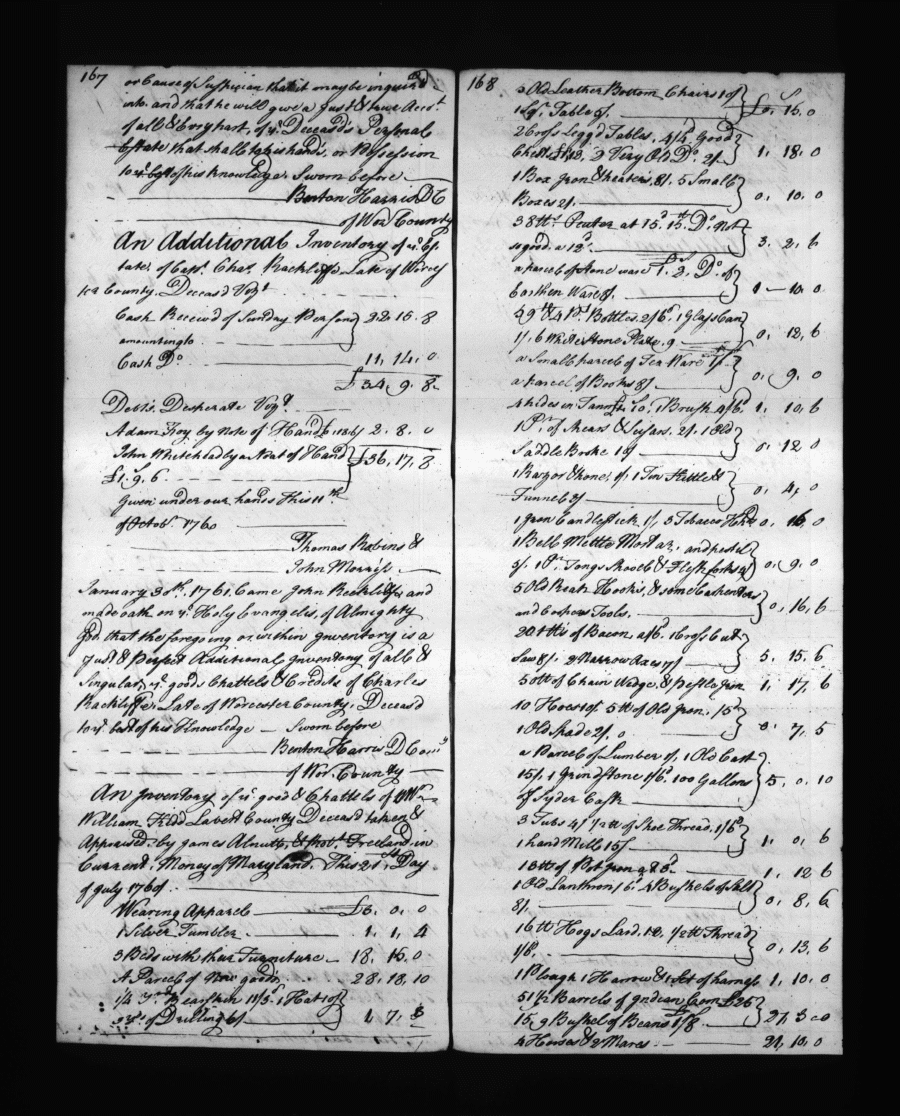 167
or Cause of Suspician that it may be inquired
into and that he will give a just & true Acct
of all & Every part, of ye Deceased's Personal
Estate that shall to his hands, or Possession
to ye best of his Knowledge. Sworn before
Benton Harris D C
of Wor County
An Additional Inventory of ye Es
tate of Capt. Chas. Rackliffe Late of Worces
ter County Deceasd Vizt
Cash Receivd of Sunday Persons 22. 15. 8
amounting to
Cash Do 11. 14. 0
£34. 9. 8
Debts Desperate Vizt
Adam by Note of Hand 2. 8. 0
John Whitehead by a Noat of Hand £36. 17. 8
£1. 9. 6
Given under our hands this 11th
of Octob. 1760
Thomas Robins &
John Morris
January 30th, 1761. Came John Rackliffe and
made oath on ye Holy Evangelis, of Almighty
God that the foregoing or within Inventory is a
Just & Perfect Additional Inventory of all &
Singular ye goods Chattels & Credits of Charles
Rackliffe Late of Worcester County, Deceasd
to ye best of his Knowledge Sworn before
Benton Harris D Comy
of Wor. County
An Inventory of ye good & Chattels of Mr
William Kidd Calvert County Deceasd taken &
Appraised by James Alnutt, & Robt. Freeland in
Current Money of Maryland This 21st Day
of July 1760
Wearing Apparel £6. 0. 0
1 Silver Tumbler 1. 1. 4
3 Beds with their Furniture 18. 15. 0
A Parcel of New goods 28. 18. 10
1 1/4 Yd Bearskin 11/5. 1 Hat of
yds of Drilling 6/ 1. 7. 8
168
5 Old Leather Bottom Chairs 10/
1 Lge Table 5/. £0. 15. 0
2 Cross Legg'd Tables. 4/6. Good
Chest £1.12. 2 Very Old Do 2/. 1. 18. 0
1 Box Iron & heaters. 8/. 5 Small
Boxes 2/. 0. 10. 0
38 lb Peuter at 15d 15 lb Do Not
so good a 12d 3. 2. 6
a parcel of Stone ware £1.2. Do of
Earthen Ware 8/. 1 - 10. 0
Bottles. 2/6. 1 Glass Can
1/. 6 White Stone Plate 0. 12. 6
a Small parcel of Tea Ware 1/
a parcel of Books 8/ 0. 9. 0
4 hides in Tann £1.6. 1 Brush 4/6 1. 10. 6
1 Pr of Shears & Scisars. 2/. 1 Old
Saddle Broke 10/ 0. 12 0
1 Razor & hone 1/. 1 Tin Kettle &
Funnel 3/ 0. 4. 0
1 Iron Candlestick 1/. 3 Tobacco 0. 16. 0
1 Bell Mettle Mortar, and pestel
5/. 1 Pr Tongs Shovel & Flesh fork 4/ 0. 9. 0
5 Old Reap Hooks, & some Carpenters
and Coopers Tools. 0. 16. 6
lbs of Bacon a/6d. 1 Cross Cut
Saw 8/. 2 Narrow Axes 7/ 5. 15. 6
50 lb of Chain Wedge & Pestle Iron 1. 17. 6
10 Hoes 10/. 5 lb of Old Iron. 15d
1 Old Spade 2/. 0. 7. 5
a Parcel of Lumber 1 Old Cart
15/. 1 Grindstone 1/6. 100 Gallons 5. 0. 10
of Syder Cask
3 Tubs 4/ 1/2 lb of Shoe Thread. 1/6d
1 hand Mill 15/ 1. 0. 6
lb of Pot Iron a 3d 1. 12 6
1 Old Lanthron /6d. 4 Bushels of Salt
8/. 0. 8. 6
16 lb Hogs Lard. 12. 1/2 lb Thread
1/6. 0. 13. 6
1 Plough 1 Harrow & 1 Set of harness 1. 10. 0
51 1/2 Barrels of Indian Corn £25
15. 9 Bushel of Beans 27. 3 - 0
4 Horses & 2 Mares 21. 10. 0